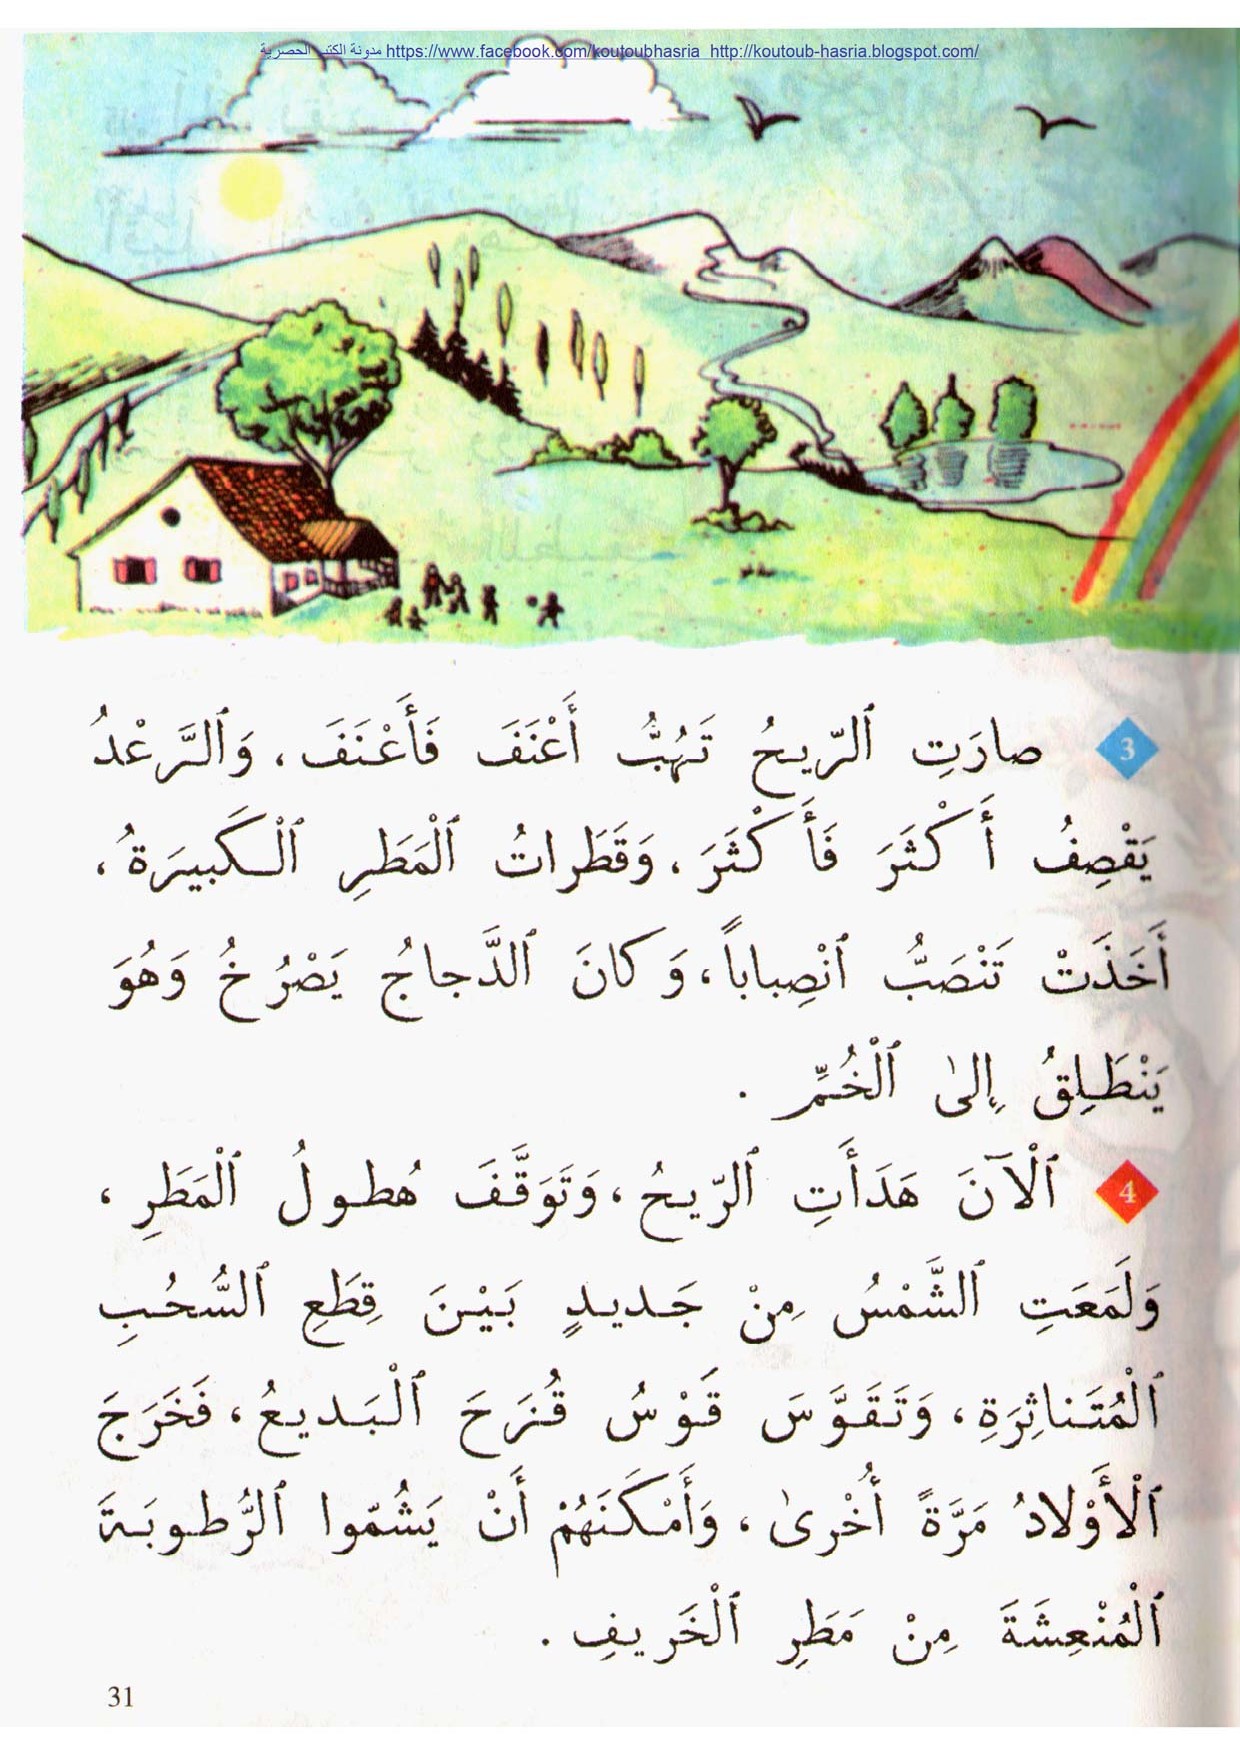 مدونة الكتب الحصرية https://www.facebook.com/koutoubhasria http://koutoub-hasria.blogspot.com/
3 صارَتِ ٱلرّيحُ تَهُبُّ أَعْنَفَ فَأَعْنَفَ، وَٱلرَّعْدُ
يَقْصِفُ أَكْثَرَ فَأَكْثَرَ، وَقَطَراتُ ٱلْمَطَرِ ٱلْكَبيرَةُ،
أَخَذَتْ تَنْصَبُّ ٱنْصِباباً، وَكانَ ٱلدَّجاجُ يَصْرُخُ وَهُوَ
يَنْطَلِقُ إِلىٰ ٱلْخُمِّ .
4 ٱلْآنَ هَدَأَتِ ٱلرّيحُ، وَتَوَقَّفَ هُطولُ ٱلْمَطَرِ ،
وَلَمَعَتِ ٱلشَّمْسُ مِنْ جَديدٍ بَيْنَ قِطَعِ ٱلسُّحُبِ
ٱلْمُتَناثِرَةِ، وَتَقَوَّسَ قَوْسُ قُزَحَ ٱلْبَديعُ، فَخَرَجَ
ٱلْأَوْلادُ مَرَّةً أُخْرىٰ، وَأَمْكَنَهُمْ أَنْ يَشُمّوا ٱلرُّطوبَةَ
ٱلْمُنْعِشَةَ مِنْ مَطَرِ ٱلْخَريفِ .
31